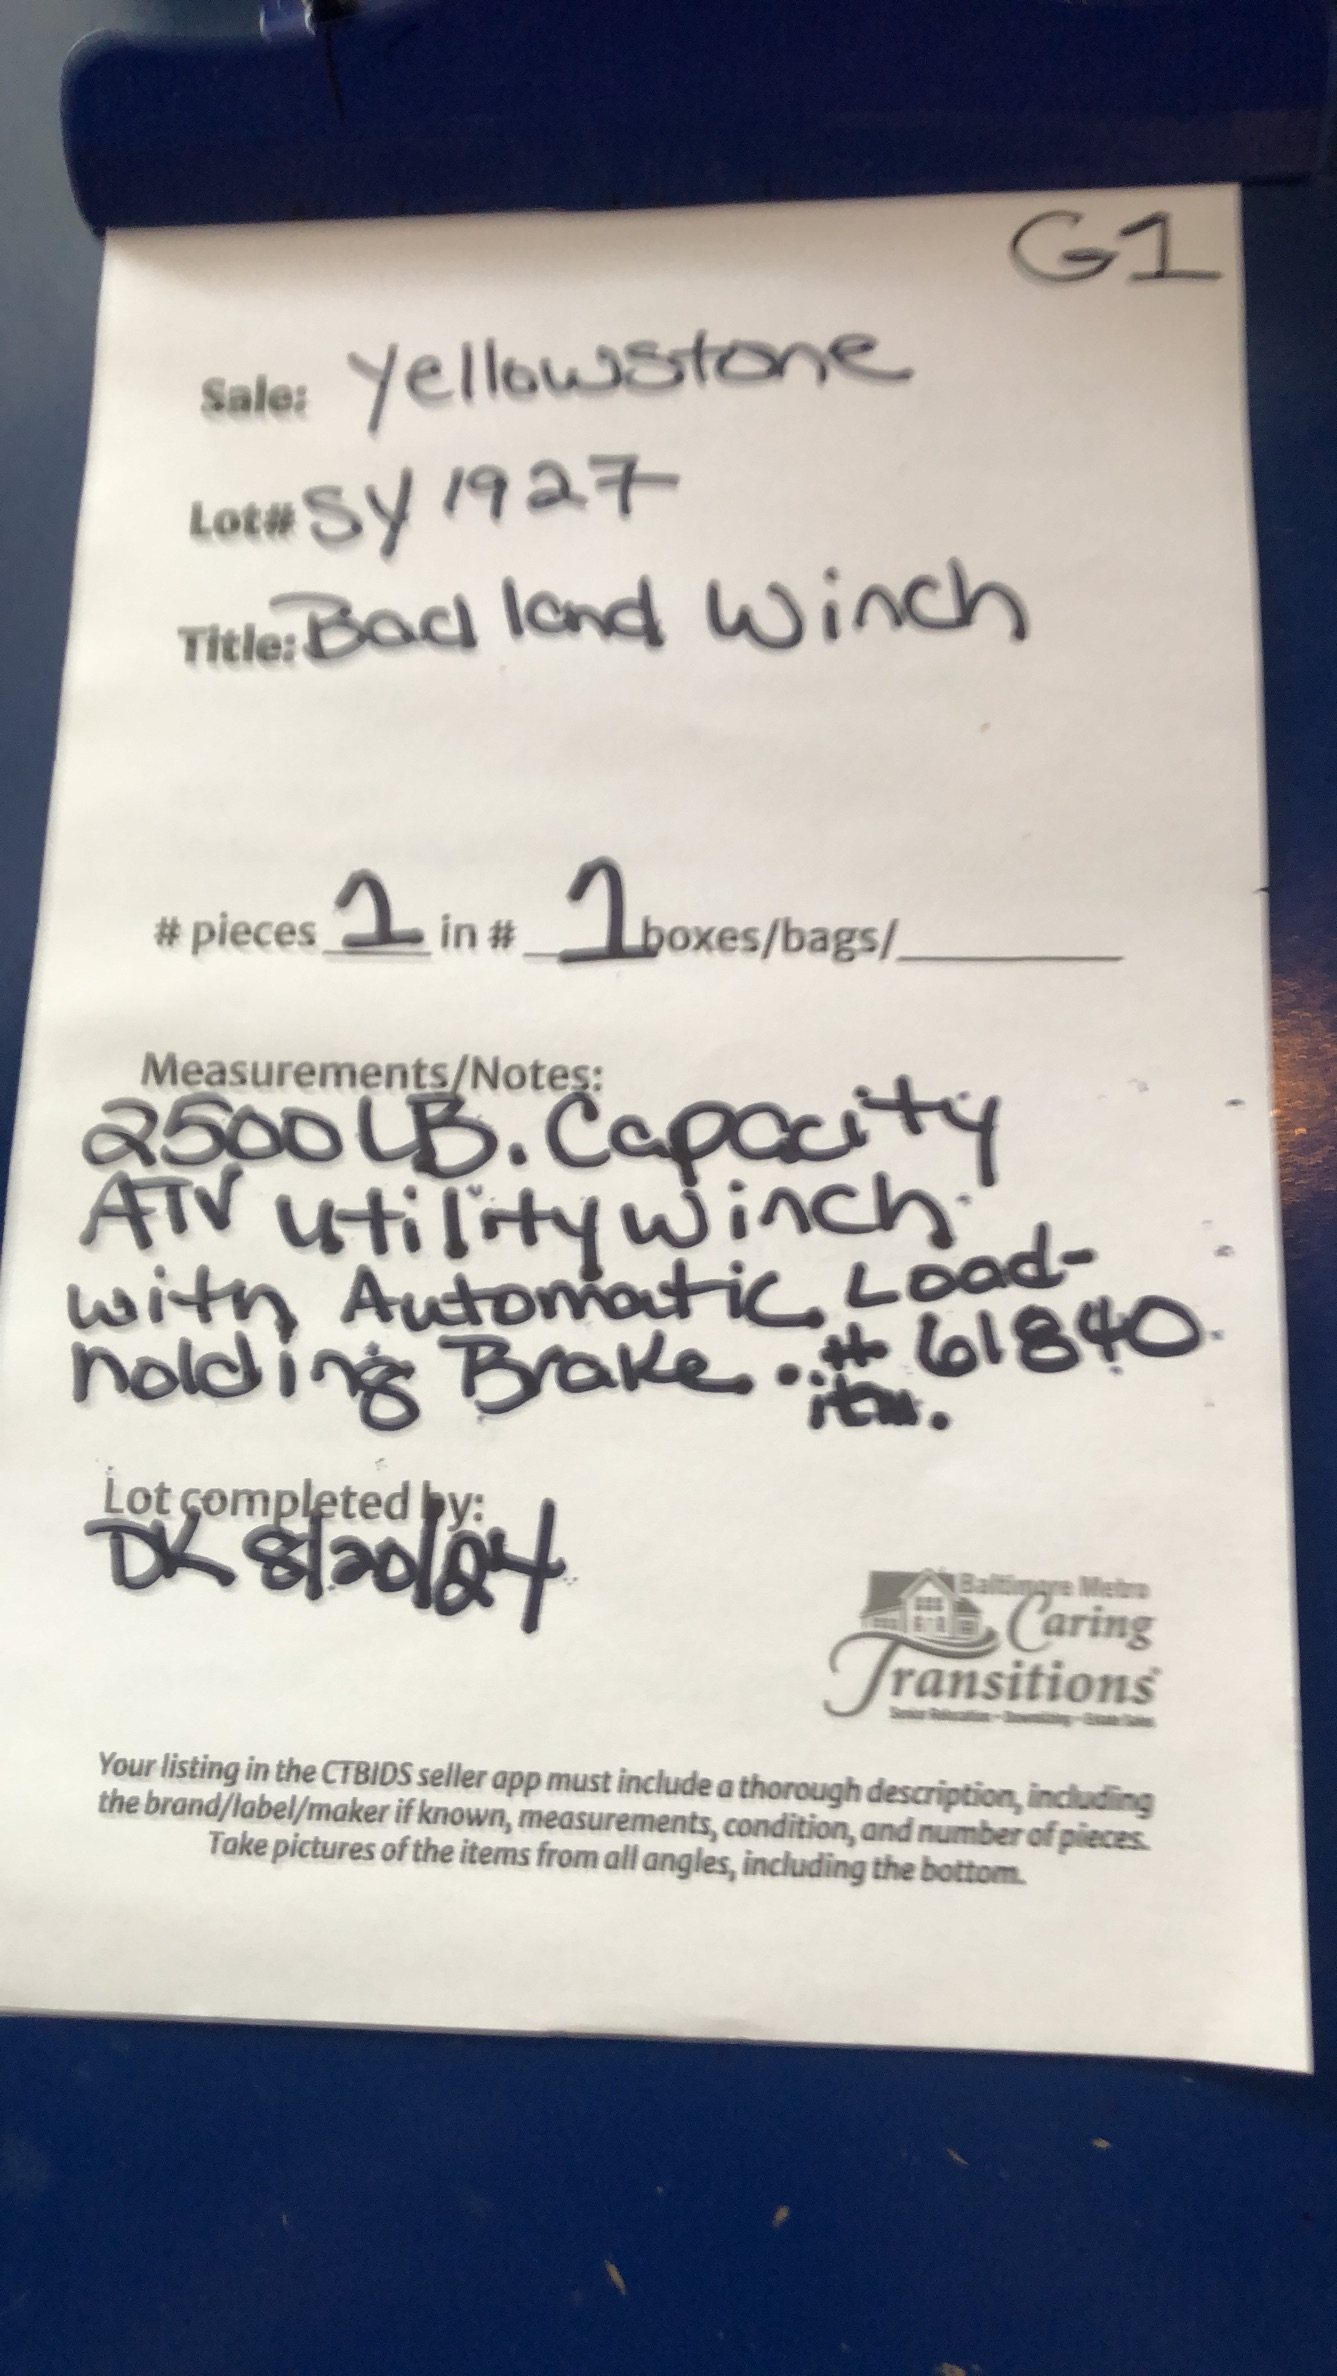 G1
Sale: Yellowstone
Lot# SY1927
Title: Badland Winch
# pieces 1 in # 1 boxes/bags/
Measurements/Notes:
2500 LB. Capacity
ATV utility winch
with Automatic Load-
holding Brake. # 61840
itm.
Lot completed by:
DK 8/20/24
Baltimore Metro
Caring
Transitions
Senior Relocation • Downsizing • Estate Sales
Your listing in the CTBIDS seller app must include a thorough description, including
the brand/label/maker if known, measurements, condition, and number of pieces.
Take pictures of the items from all angles, including the bottom.